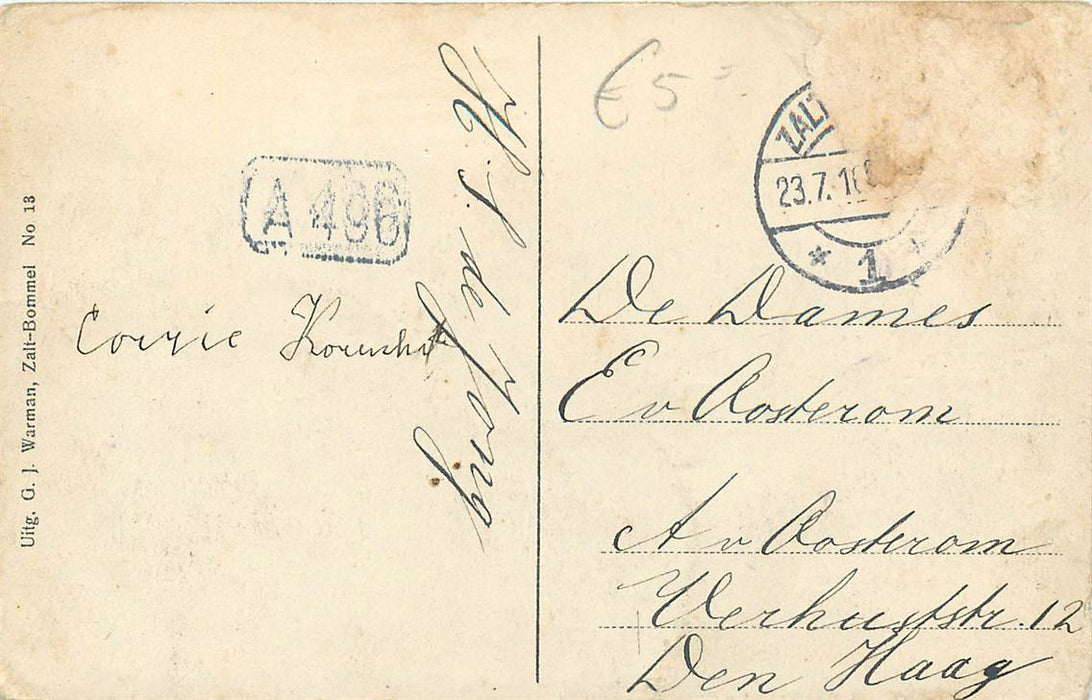 Uitg. G. J. Warman, Zalt-Bommel No. 13
A 496
Corrie
de Jong
€ 5
ZALT
23.7.16
* 1 *
De Dames
E v Oosterom
A v Oosterom
Verhulststr. 12
Den Haag